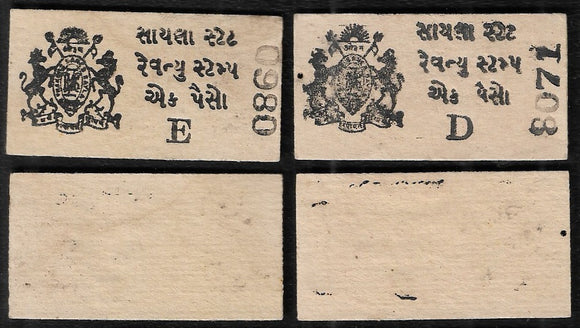 સાયલા સ્ટેટ
રેવન્યુ સ્ટેમ્પ
એક પૈસો
E
0980
સાયલા સ્ટેટ
રેવન્યુ સ્ટેમ્પ
એક પૈસો
D
1708